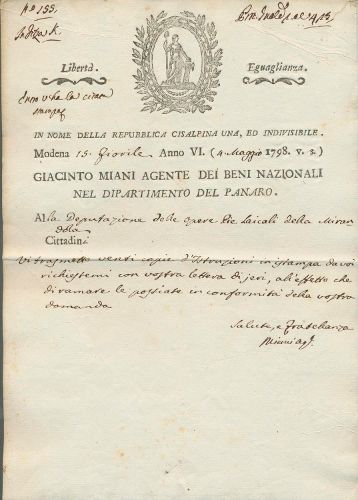 N.° 155
Libertà. Eguaglianza.
IN NOME DELLA REPUBBLICA CISALPINA UNA, ED INDIVISIBILE.
Modena 15. Fiorile Anno VI. (4. Maggio 1798. v. s.)
GIACINTO MIANI AGENTE DEI BENI NAZIONALI
NEL DIPARTIMENTO DEL PANARO.
Alla Deputazione delle Opere Pie Laicali della Miran
dola
Cittadini
Vi trasmetto venti copie d'Istruzioni in istampa da voi
richiestemi con vostra lettera di jeri, all'effetto che
diramare le possiate in conformità della vostra
domanda
Salute, e Fratellanza
Miani ag.